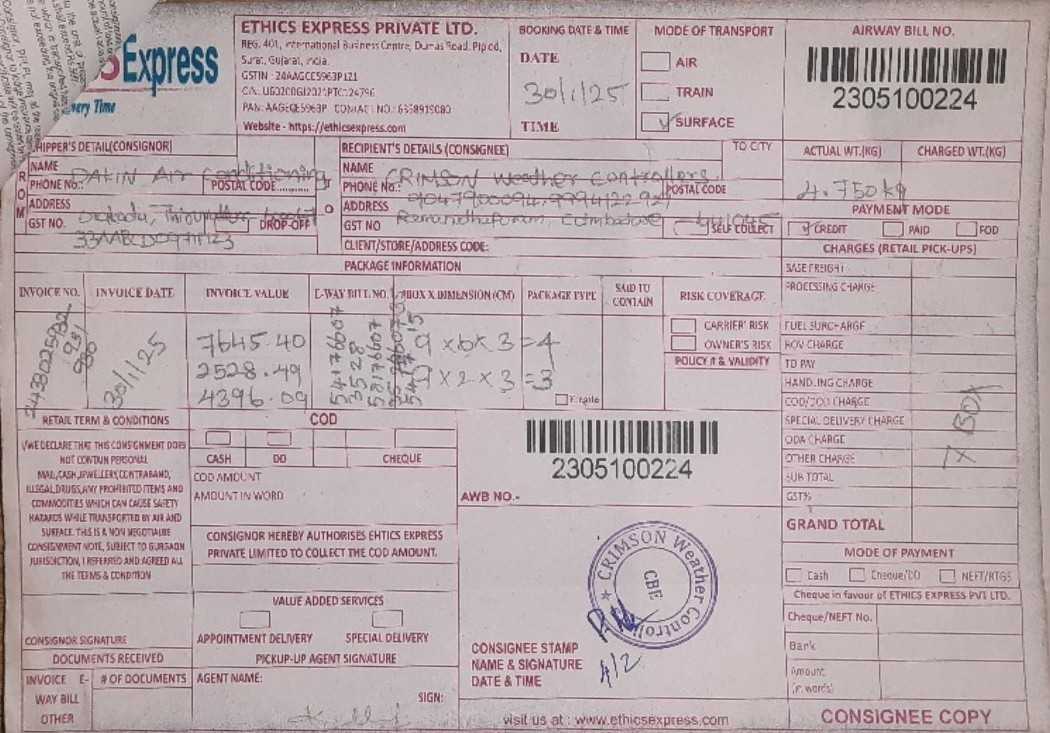 Express
very Time
ETHICS EXPRESS PRIVATE LTD.
REG. 401, International Business Centre, Dumas Road, Piplod,
Surat, Gujarat, India.
GSTIN : 24AAGCE5963P1Z1
PAN: AAGCE5963P CONTACT NO.: 6358919080
Website - https://ethicsexpress.com
BOOKING DATE & TIME
DATE
30/1/25
TIME
MODE OF TRANSPORT
AIR
TRAIN
SURFACE
AIRWAY BILL NO.
2305100224
HIPPER'S DETAIL(CONSIGNOR)
NAME DAKIN Air Conditioning
PHONE No.: POSTAL CODE
ADDRESS
GST NO. DROP-OFF
FROM
TO
RECIPIENT'S DETAILS (CONSIGNEE)
TO CITY
NAME CRIMSON Weather Controllers.
PHONE No.: POSTAL CODE
ADDRESS
GST NO Coimbatore SELF COLLECT
CLIENT/STORE/ADDRESS CODE:
ACTUAL WT.(KG) CHARGED WT.(KG)
4.750kg
PAYMENT MODE
CREDIT PAID FOD
PACKAGE INFORMATION
INVOICE NO. INVOICE DATE INVOICE VALUE E-WAY BILL NO. #BOX X DIMENSION (CM) PACKAGE TYPE SAID TO CONTAIN RISK COVERAGE
30/1/25
7645.40
2528.49
4396.09
9 x 6 x 3 = 4
9 x 2 x 3 = 3
Fragile
CARRIER' RISK
OWNER'S RISK
POLICY # & VALIDITY
CHARGES (RETAIL PICK-UPS)
BASE FREIGHT
PROCESSING CHARGE
FUEL SURCHARGE
ROV CHARGE
TO PAY
HANDLING CHARGE
COD/DOD CHARGE
SPECIAL DELIVERY CHARGE
ODA CHARGE
OTHER CHARGE
SUB TOTAL
GST%
GRAND TOTAL
7x BOX
RETAIL TERM & CONDITIONS
I/WE DECLARE THAT THIS CONSIGNMENT DOES
NOT CONTAIN PERSONAL
MAIL,CASH,JEWELLERY,CONTRABAND,
ILLEGAL,DRUGS,ANY PROHIBITED ITEMS AND
COMMODITIES WHICH CAN CAUSE SAFETY
HAZARDS WHILE TRANSPORTED BY AIR AND
SURFACE. THIS IS A NON NEGOTIALBE
CONSIGNMENT NOTE, SUBJECT TO GURGAON
JURISDICTION, I REFERRED AND AGREED ALL
THE TERMS & CONDITION
CONSIGNOR SIGNATURE
COD
CASH DD CHEQUE
COD AMOUNT
AMOUNT IN WORD
CONSIGNOR HEREBY AUTHORISES EHTICS EXPRESS
PRIVATE LIMITED TO COLLECT THE COD AMOUNT.
VALUE ADDED SERVICES
APPOINTMENT DELIVERY SPECIAL DELIVERY
2305100224
AWB NO.-
CRIMSON Weather Controll
CBE
CONSIGNEE STAMP
NAME & SIGNATURE
DATE & TIME
4/2
MODE OF PAYMENT
Cash Cheque/DD NEFT/RTGS
Cheque in favour of ETHICS EXPRESS PVT LTD.
Cheque/NEFT No.
Bank
Amount
(in words)
DOCUMENTS RECEIVED
INVOICE E-WAY BILL OTHER
# OF DOCUMENTS
PICKUP-UP AGENT SIGNATURE
AGENT NAME:
SIGN:
visit us at : www.ethicsexpress.com
CONSIGNEE COPY